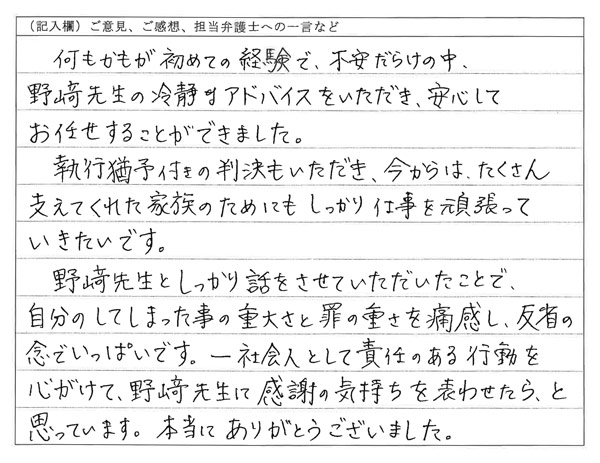 （記入欄）ご意見、ご感想、担当弁護士への一言など
何もかもが初めての経験で、不安だらけの中、
野﨑先生の冷静なアドバイスをいただき、安心して
お任せすることができました。
執行猶予付きの判決もいただき、今からは、たくさん
支えてくれた家族のためにもしっかり仕事を頑張って
いきたいです。
野﨑先生としっかり話をさせていただいたことで、
自分のしてしまった事の重大さと罪の重さを痛感し、反省の
念でいっぱいです。一社会人として責任のある行動を
心がけて、野﨑先生に感謝の気持ちを表わせたら、と
思っています。本当にありがとうございました。